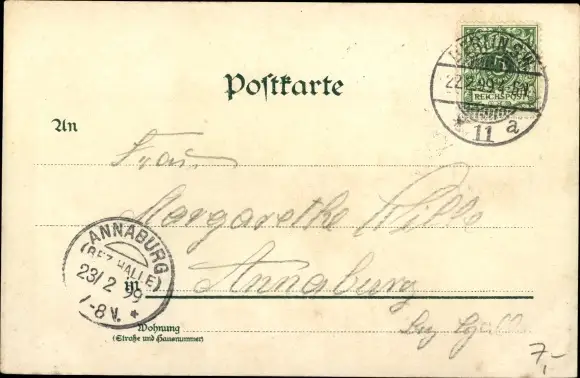 Postkarte
BERLIN S.W.
22.2.99
11 a
REICHSPOST
An
Frau
Margarethe
Annaburg
ANNABURG
(BEZ. HALLE)
23/2 99
7-8 V. *
in
Bez Halle
Wohnung
(Straße und Hausnummer)
7,-